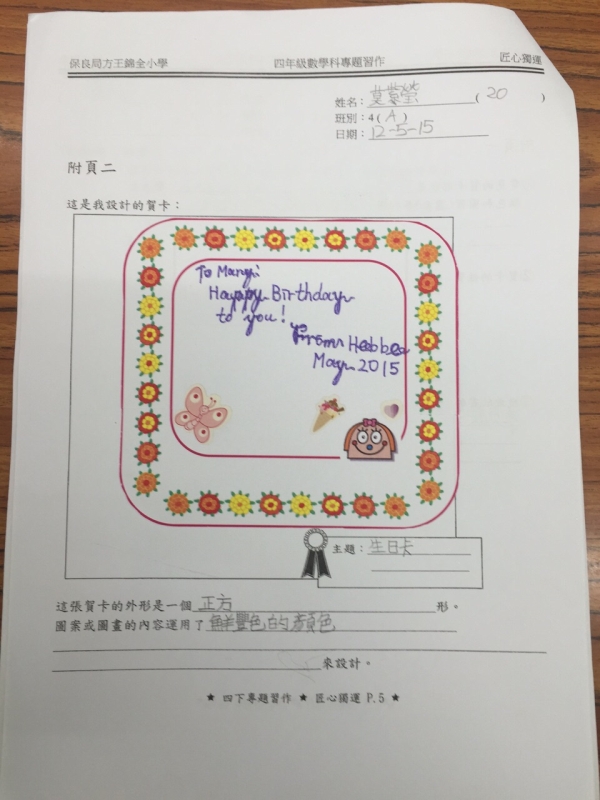 保良局方王錦全小學 四年級數學科專題習作 匠心獨運
姓名： (20)
班別：4(A)
日期：12-5-15
附頁二
這是我設計的賀卡：
To Mary:
Happy Birthday
to you!
From Hebbe
May 2015
主題：生日卡
這張賀卡的外形是一個 正方 形。
圖案或圖畫的內容運用了 鮮豐色的顏色
來設計。
★ 四下專題習作 ★ 匠心獨運 P.5 ★